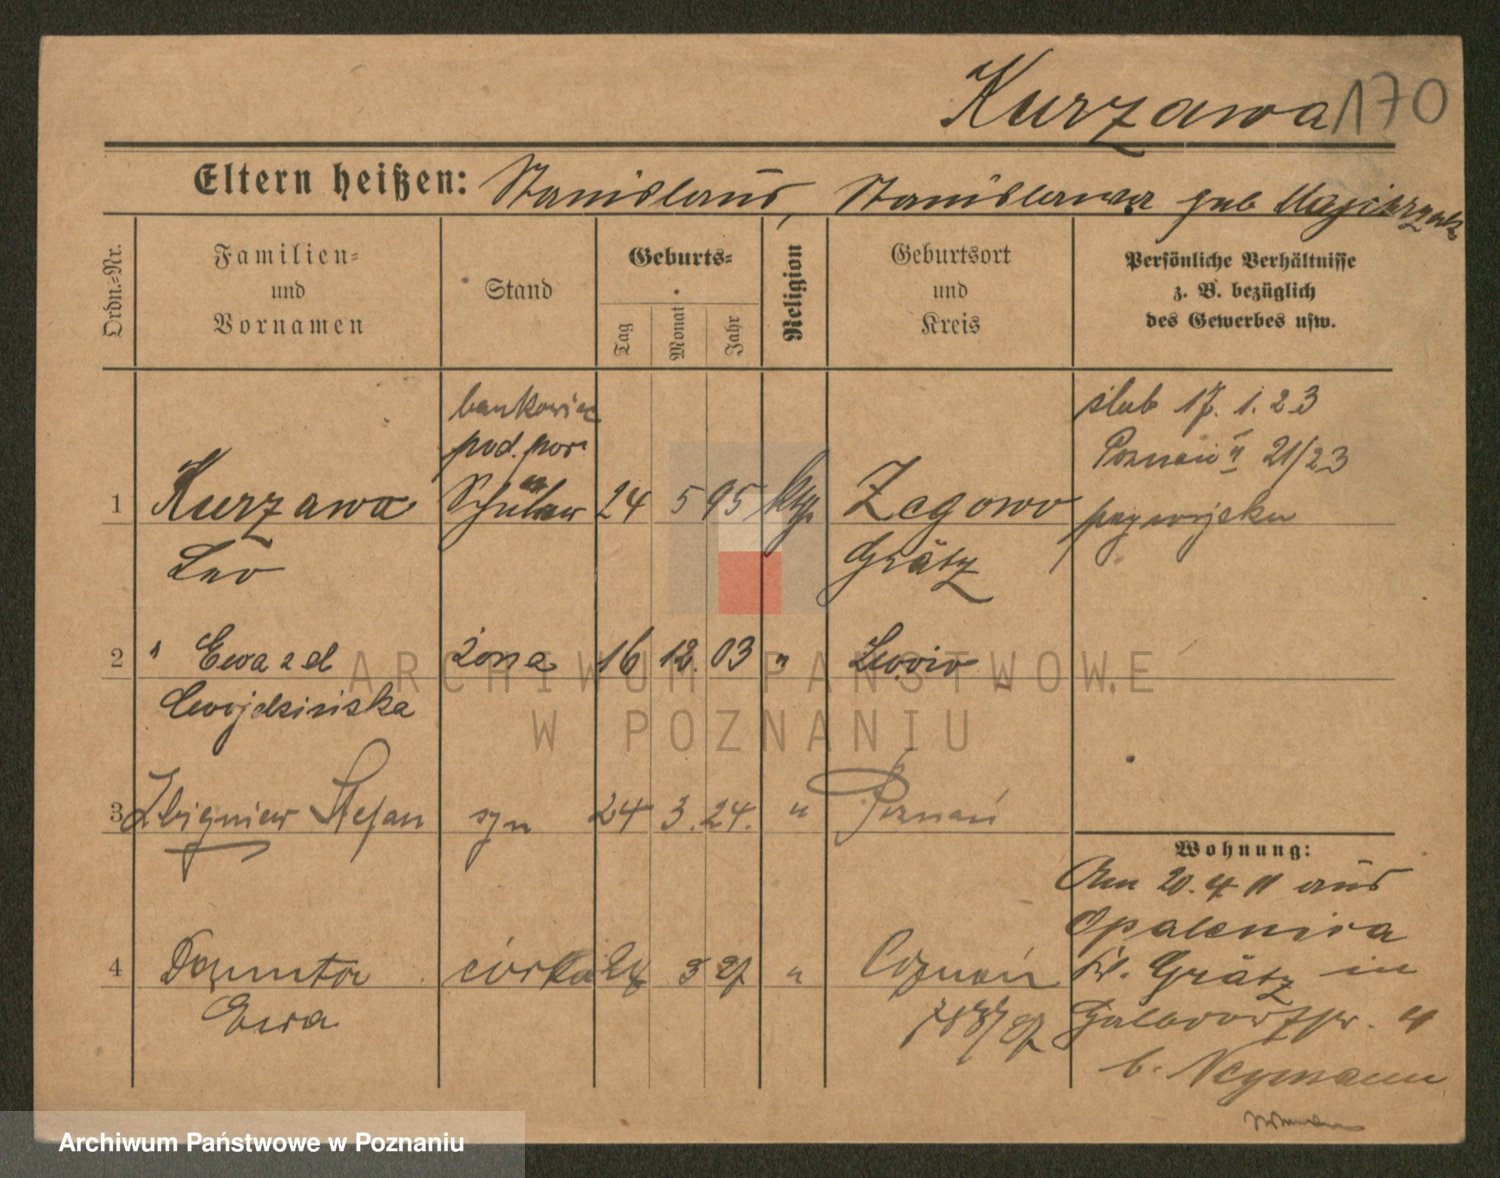 Kurzawa 170
Eltern heißen: Stanislaus, Stanislawa geb Majchrzak
Ordn.=Nr.
Familien=
und
Vornamen
Stand
Geburts=
Tag
Monat
Jahr
Religion
Geburtsort
und
Kreis
Persönliche Verhältnisse
z. B. bezüglich
des Gewerbes usw.
bankowiec
pod. por
1 Kurzawa Schüler 24 5 95 kth Zegowo
Leo Grätz
ślub 17. 1. 23
Poznań 21/23
2 " Ewa z d żona 16 12. 03 " Lwów
Cwojdzińska
3 Zbigniew Stefan syn 24 3. 24. " Poznań
4 Danuta córka 24 3 27 " Poznań
Ewa
Wohnung:
Am 20. 4 11 aus
Opalenica
Kr. Grätz in
b. Neymann
ARCHIWUM PAŃSTWOWE
W POZNANIU
Archiwum Państwowe w Poznaniu